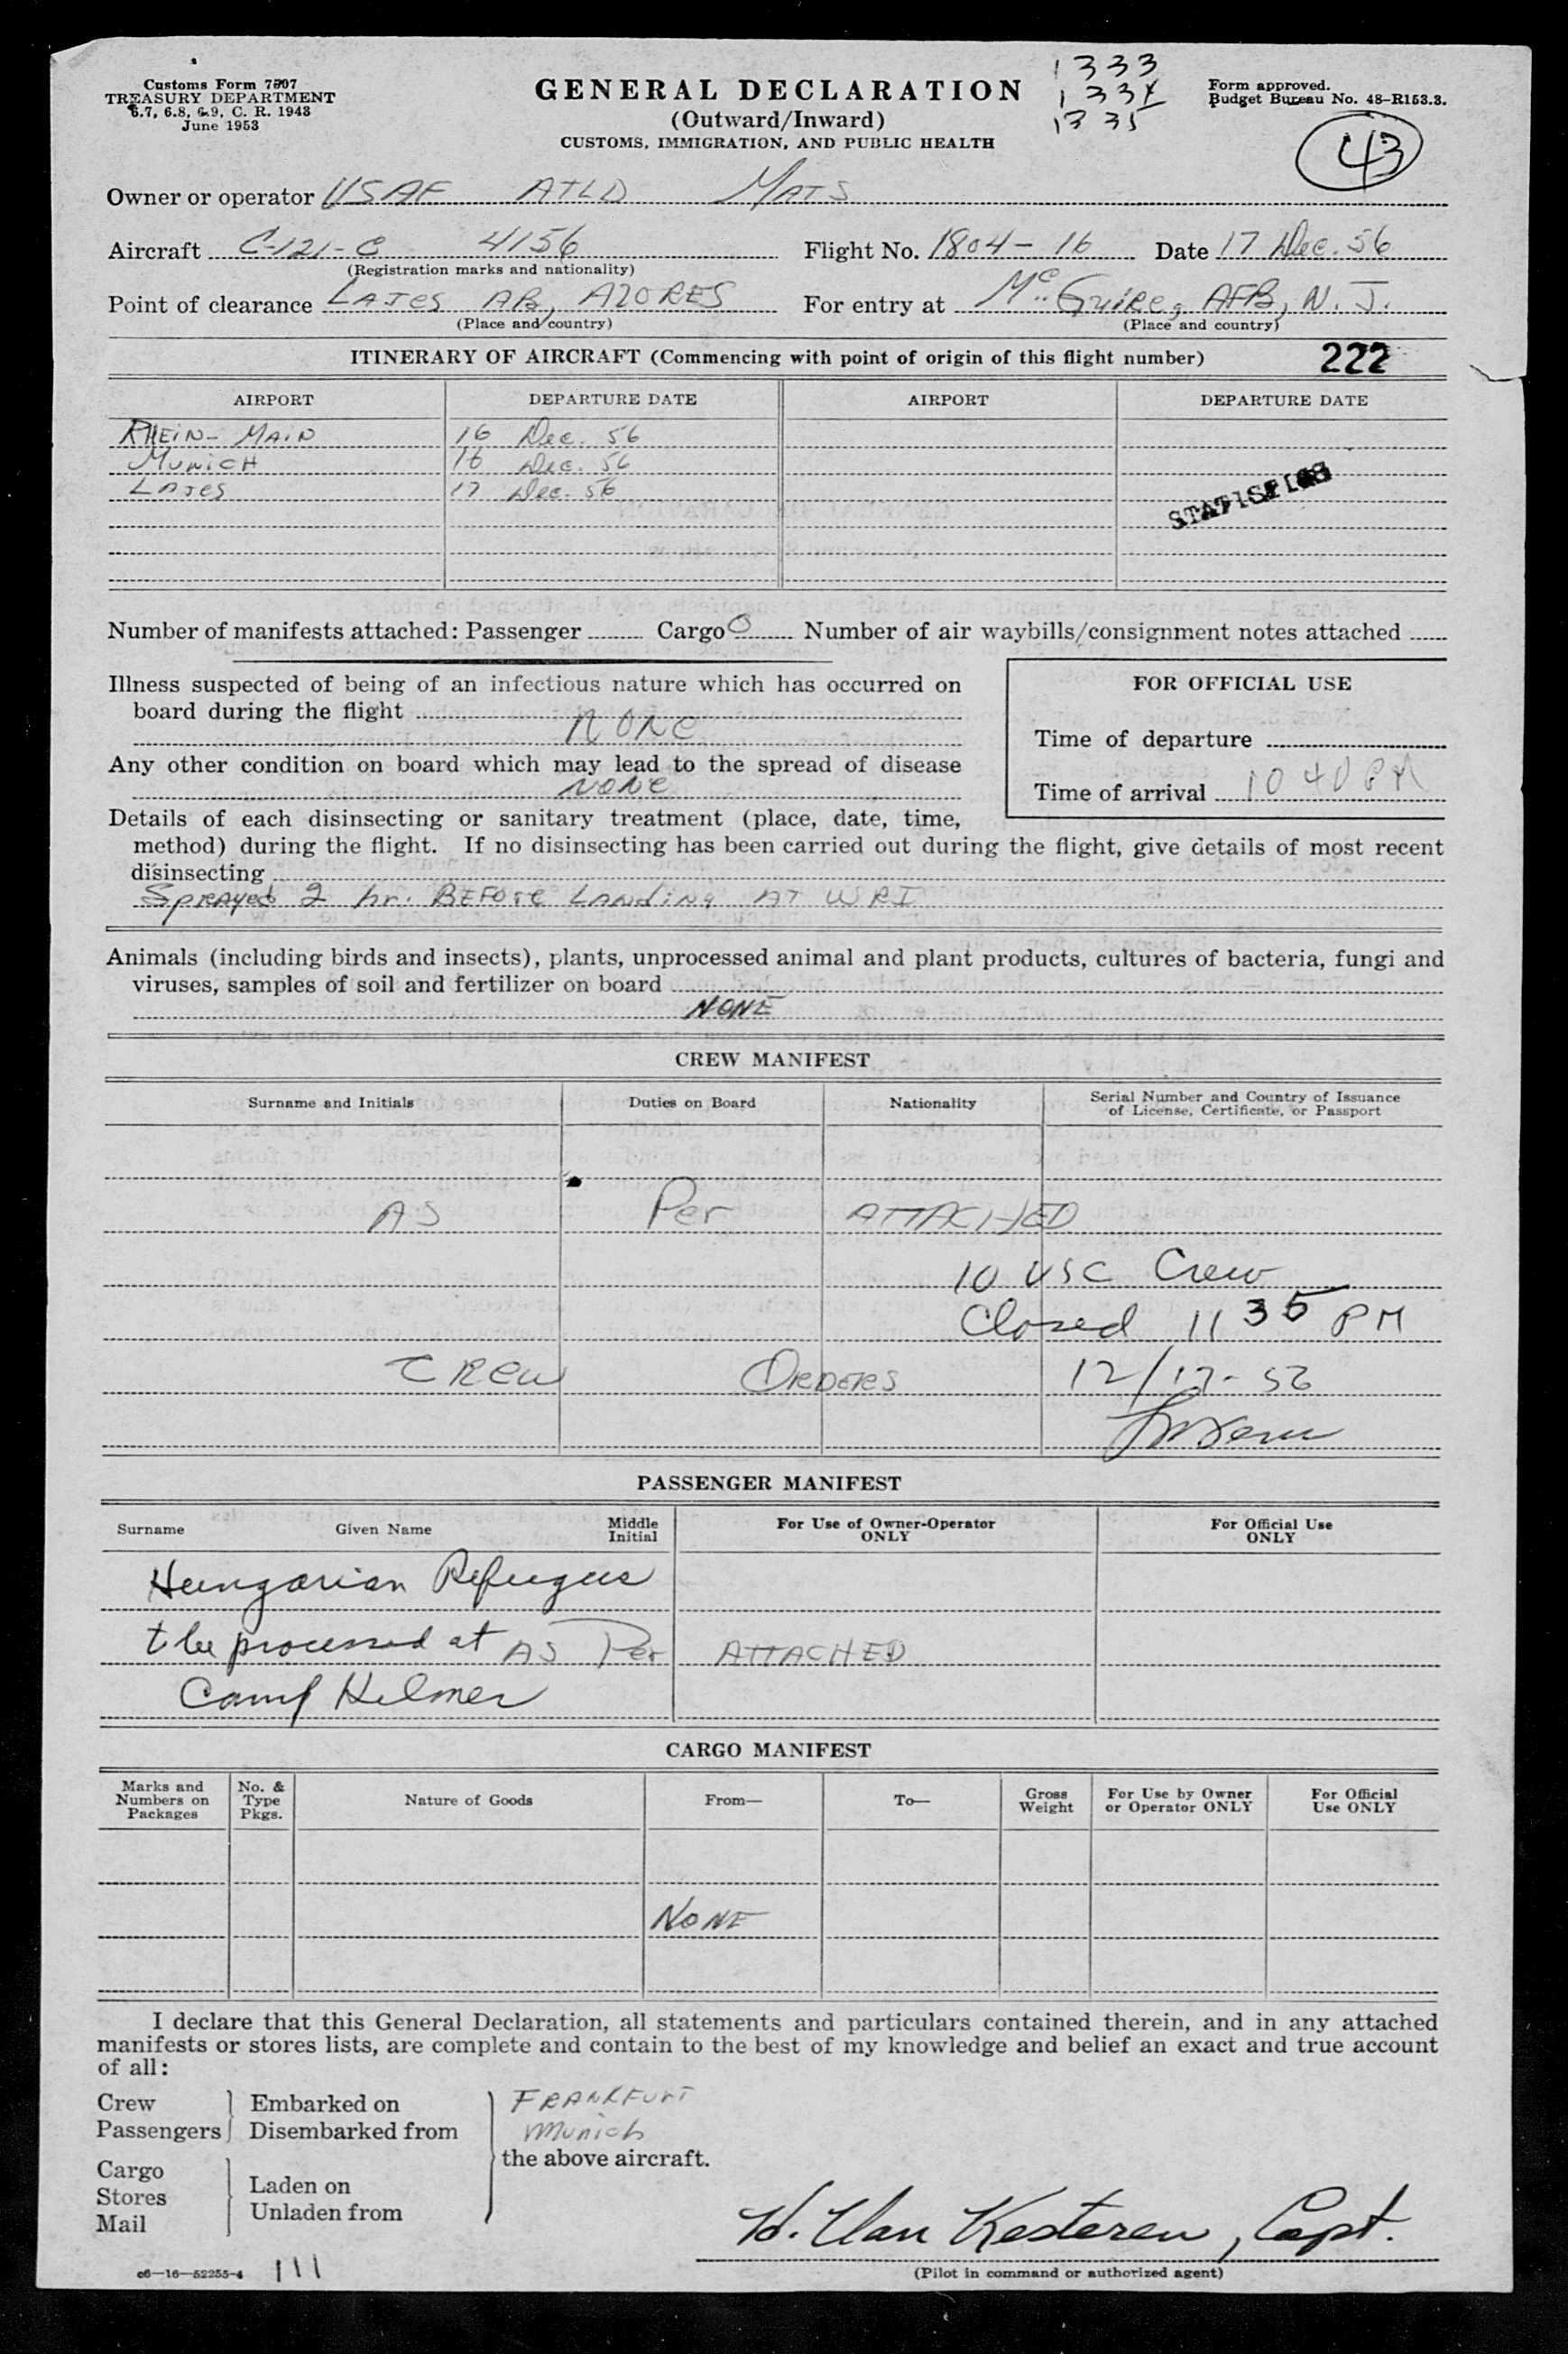 Customs Form 7507
TREASURY DEPARTMENT
6.7, 6.8, 6.9, C. R. 1943
June 1953
GENERAL DECLARATION
(Outward/Inward)
CUSTOMS, IMMIGRATION, AND PUBLIC HEALTH
1333
1334
1335
Form approved.
Budget Bureau No. 48–R153.3.
43
Owner or operator USAF ATLD MATS
Aircraft C-121-C 4156 Flight No. 1804-16 Date 17 Dec. 56
(Registration marks and nationality)
Point of clearance LAJES AB, AZORES For entry at McGuire, AFB, N. J.
(Place and country) (Place and country)
ITINERARY OF AIRCRAFT (Commencing with point of origin of this flight number) 222
AIRPORT DEPARTURE DATE AIRPORT DEPARTURE DATE
RHEIN-MAIN 16 Dec. 56
MUNICH 16 Dec. 56
LAJES 17 Dec. 56
STATISTICS
Number of manifests attached: Passenger Cargo 0 Number of air waybills/consignment notes attached
Illness suspected of being of an infectious nature which has occurred on
board during the flight
NONE
Any other condition on board which may lead to the spread of disease
NONE
FOR OFFICIAL USE
Time of departure
Time of arrival 10 40 PM
Details of each disinsecting or sanitary treatment (place, date, time,
method) during the flight. If no disinsecting has been carried out during the flight, give details of most recent
disinsecting
SPRAYed 2 hr. BEFORE LANDING AT WRI
Animals (including birds and insects), plants, unprocessed animal and plant products, cultures of bacteria, fungi and
viruses, samples of soil and fertilizer on board
NONE
CREW MANIFEST
Surname and Initials Duties on Board Nationality Serial Number and Country of Issuance
of License, Certificate, or Passport
AS Per ATTACHED
10 USC Crew
Closed 11 35 PM
CREW ORDERS 12/17-56
PASSENGER MANIFEST
Surname Given Name Middle
Initial
For Use of Owner-Operator
ONLY
For Official Use
ONLY
Hungarian Refugees
to be processed at AS Per ATTACHED
Camp Kilmer
CARGO MANIFEST
Marks and
Numbers on
Packages
No. &
Type
Pkgs.
Nature of Goods From— To— Gross
Weight
For Use by Owner
or Operator ONLY
For Official
Use ONLY
NONE
I declare that this General Declaration, all statements and particulars contained therein, and in any attached
manifests or stores lists, are complete and contain to the best of my knowledge and belief an exact and true account
of all:
Crew Embarked on FRANKFURT
Passengers Disembarked from Munich
the above aircraft.
Cargo
Stores Laden on
Mail Unladen from
H. Van Kesteren, Capt.
(Pilot in command or authorized agent)
c6—16—52255-4 111